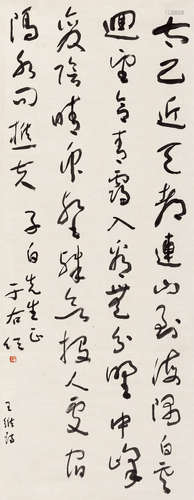 太乙近天都連山到海隅白雲
迴望合青靄入看無分野中峰
變陰晴眾壑殊欲投人處宿
隔水問樵夫 子白先生正
于右任
王維詩